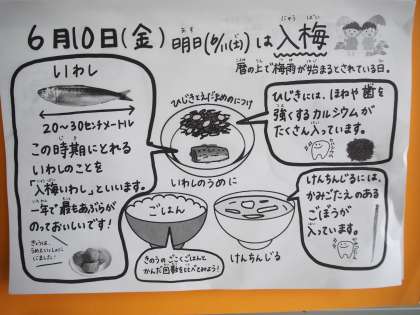 6月10日(金) 明日(6/11(土))は入梅
あす
にゅうばい
暦の上で梅雨が始まるとされている日。
いわし
20〜30センチメートル
この時期にとれる
いわしのことを
「入梅いわし」といいます。
一年で最もあぶらが
のっておいしいです！
ひじきとんだまめのにつけ
いわしのうめに
ひじきには、ほねや歯を
強くするカルシウムが
たくさん入っています。
ごはん
きのうのごこくごはんと
かんだ回数をくらべてみよう！
けんちんじる
けんちんじるには、
かみごたえのある
ごぼうが
入っています。